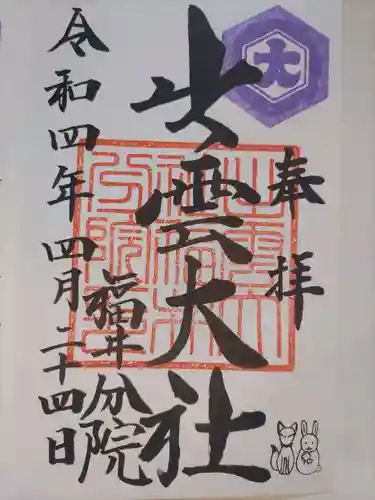 奉拝
出雲大社
福井分院
令和四年四月二十四日
大